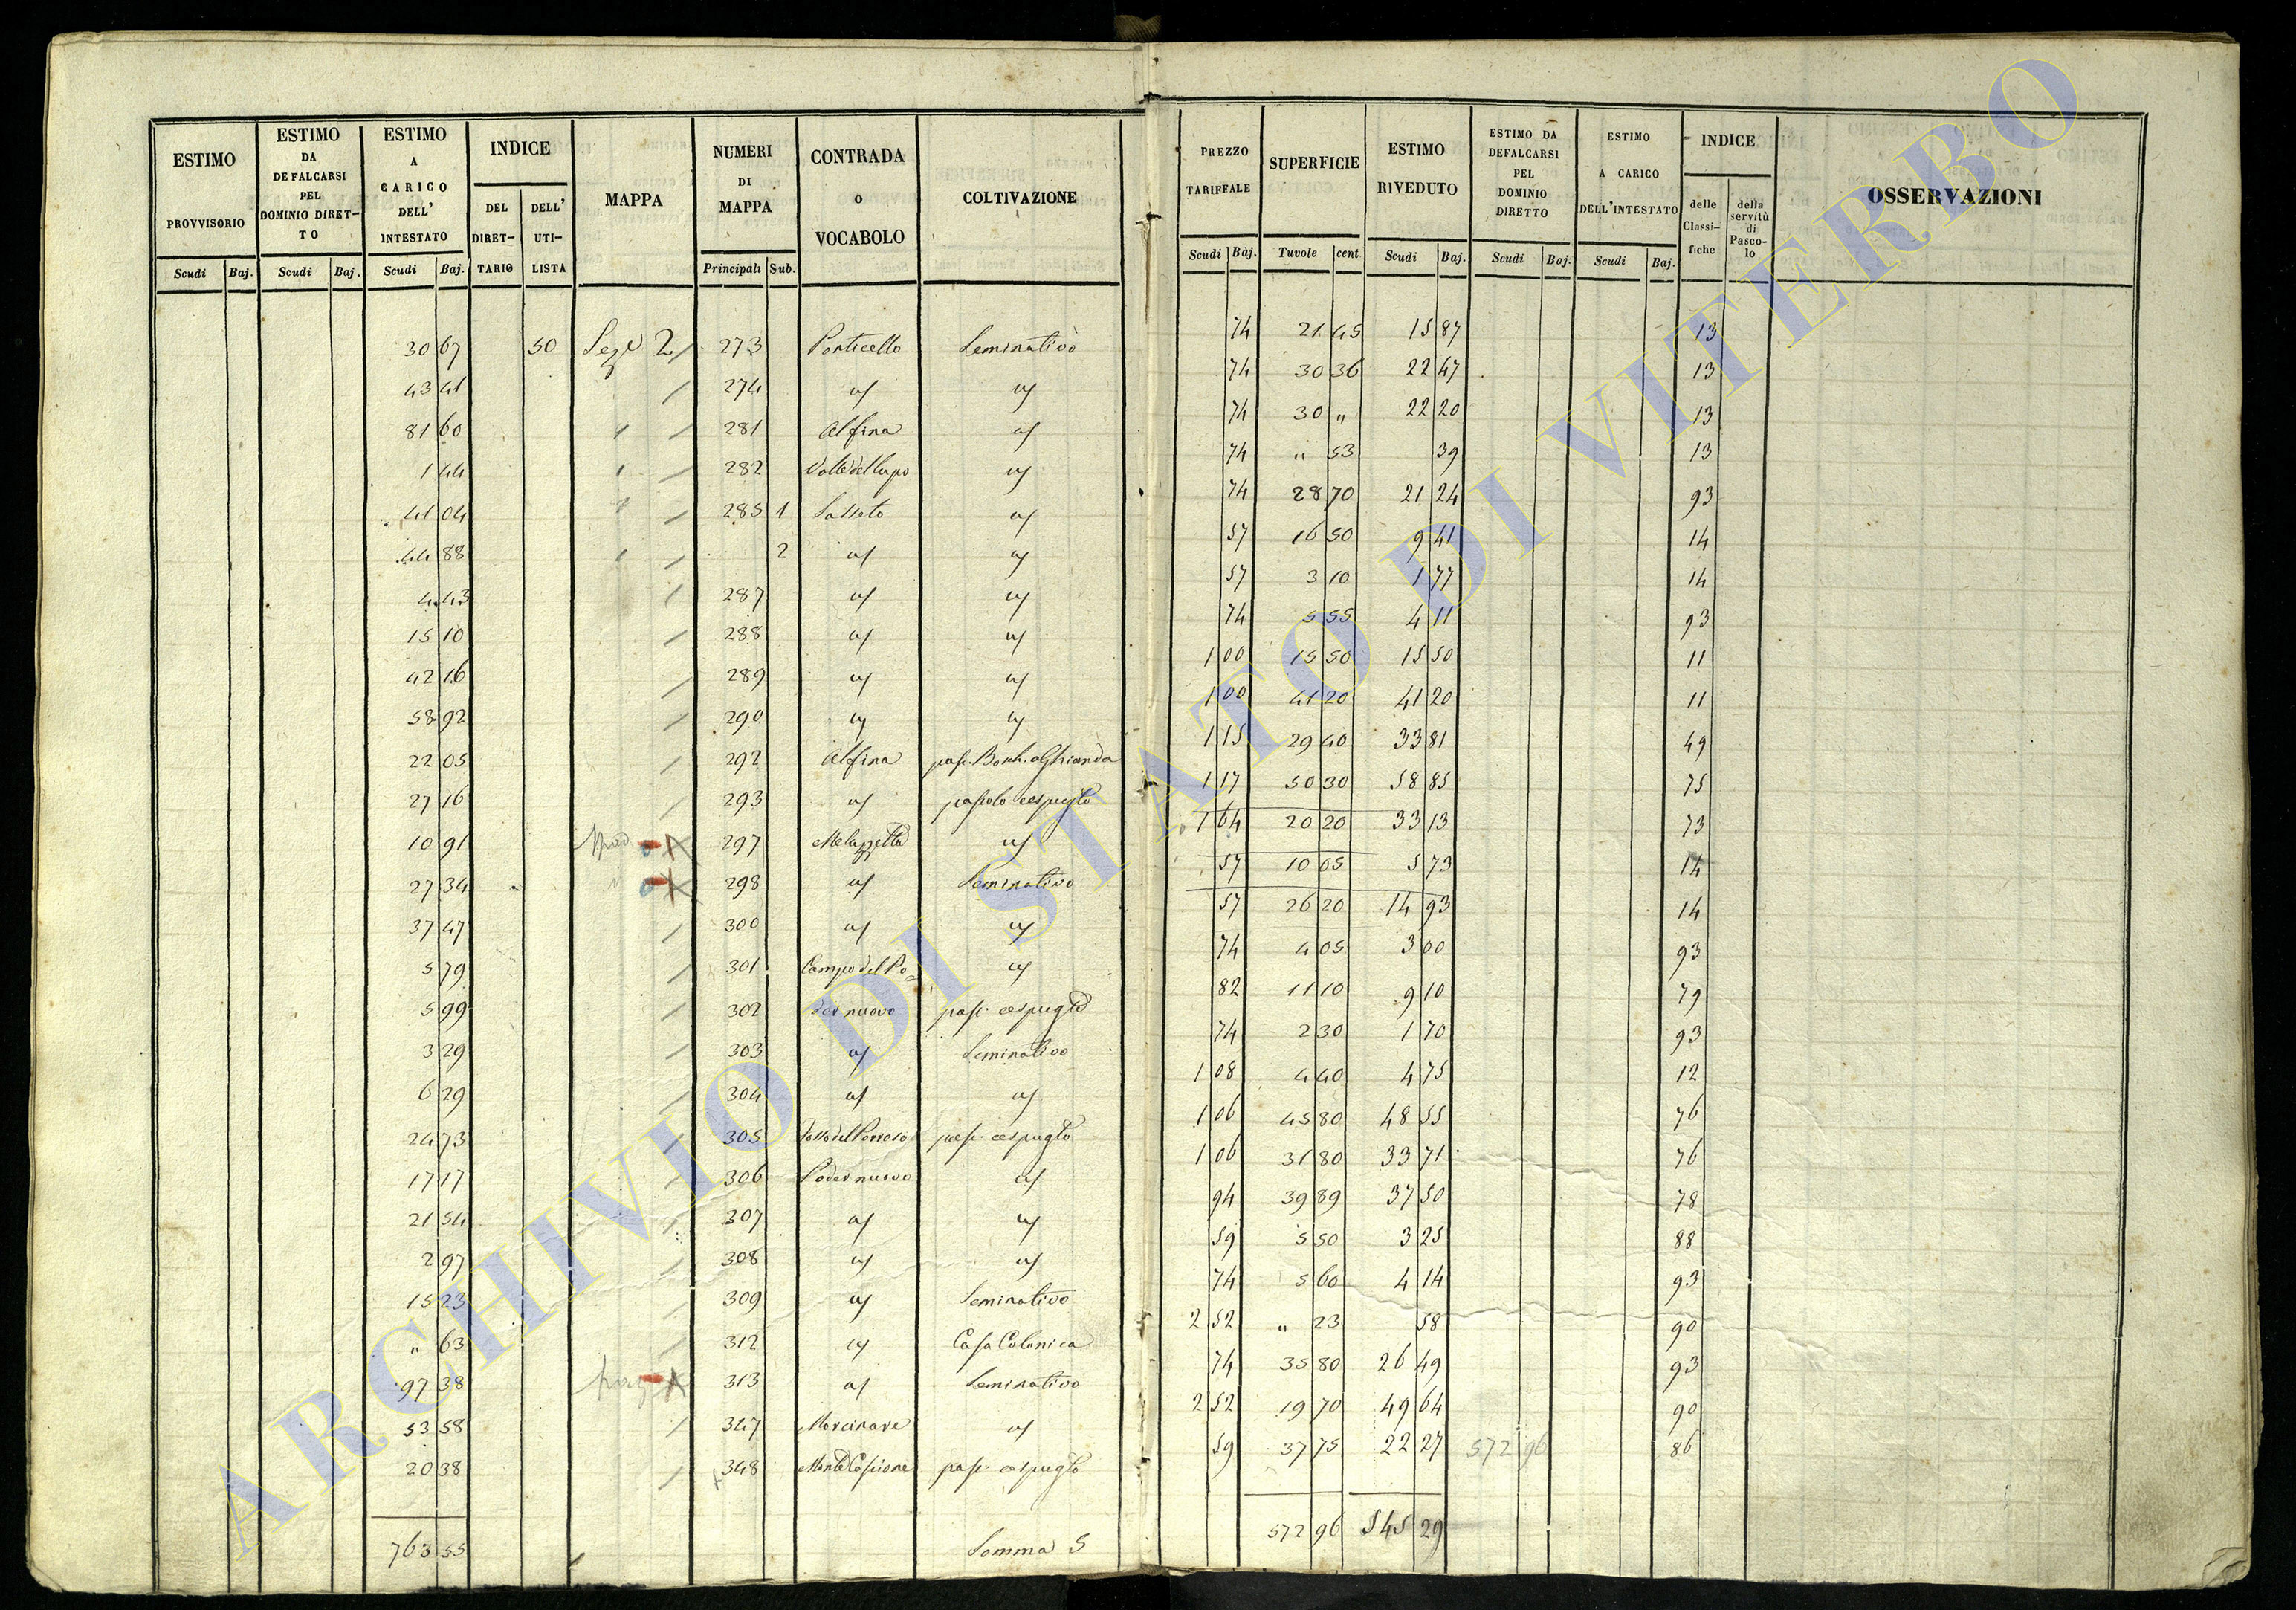 ESTIMO PROVVISORIO | ESTIMO DA DEFALCARSI PEL DOMINIO DIRET-TO | ESTIMO A CARICO DELL' INTESTATO | INDICE DEL DIRET-TARIO | DELL' UTI-LISTA | MAPPA | NUMERI DI MAPPA | CONTRADA O VOCABOLO | COLTIVAZIONE
Scudi Baj. | Scudi Baj. | Scudi Baj. | Principali Sub.
30 67 50 Sez.e 2 / 273 Ponticello Seminativo
43 41 / 274 id id
81 60 / 281 Alfina id
1 44 / 282 Valle del Lupo id
41 04 / 285 1 Sasseto id
44 88 / 2 id id
4 43 / 287 id id
15 10 / 288 id id
42 16 / 289 id id
58 92 / 290 id id
22 05 / 292 Alfina pas. Bosch. a Ghianda
27 16 / 293 id pascolo cespuglto
10 91 297 id
27 34 298 id Seminativo
37 47 / 300 id id
5 79 / 301 Campo del Po= id
5 99 / 302 der nuovo pas. cespuglto
3 29 / 303 id Seminativo
6 29 / 304 id id
24 73 / 305 pas. cespuglto
17 17 / 306 Poder nuovo id
21 54 / 307 id id
2 97 / 308 id id
15 23 / 309 id Seminativo
" 63 / 312 id Casa Colonica
97 38 313 id Seminativo
53 58 / 347 id
20 38 / 348 pas. cespuglto
763 55 Somma S
PREZZO TARIFFALE | SUPERFICIE | ESTIMO RIVEDUTO | ESTIMO DA DEFALCARSI PEL DOMINIO DIRETTO | ESTIMO A CARICO DELL'INTESTATO | INDICE delle Classi-fiche | della servitù di Pasco-lo | OSSERVAZIONI
Scudi Baj. | Tavole cent. | Scudi Baj. | Scudi Baj. | Scudi Baj.
74 21 45 15 87 13
74 30 36 22 47 13
74 30 " 22 20 13
74 " 53 39 13
74 28 70 21 24 93
57 16 50 9 41 14
57 3 10 1 77 14
74 5 55 4 11 93
1 00 15 50 15 50 11
1 00 41 20 41 20 11
1 15 29 40 33 81 49
1 17 50 30 58 85 75
1 64 20 20 33 13 73
57 10 05 5 73 14
57 26 20 14 93 14
74 4 05 3 00 93
82 11 10 9 10 79
74 2 30 1 70 93
1 08 4 40 4 75 12
1 06 45 80 48 55 76
1 06 31 80 33 71 76
94 39 89 37 50 78
59 5 50 3 25 88
74 5 60 4 14 93
2 52 " 23 58 90
74 35 80 26 49 93
2 52 19 70 49 64 90
59 37 75 22 27 572 96 86
572 96 545 29
ARCHIVIO DI STATO DI VITERBO